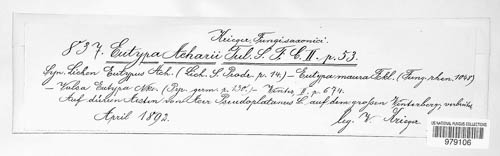 Krieger, Fungi saxonici.
837. Eutypa Acharii Tul. S. F. C. II. p. 53.
Syn. Lichen Eutypus Ach. (Lich. S. Prodr. p. 14.) – Eutypa maura Fckl. (Fung. rhen. 1048)
– Valsa Eutypa Nke. (Pyr. germ. p. 130.) – Winter, II. p. 674.
Auf dürren Aesten von Acer Pseudoplatanus L. auf dem großen Winterberg, verbreitet
April 1892. leg. W. Krieger.
US NATIONAL FUNGUS COLLECTIONS
979106